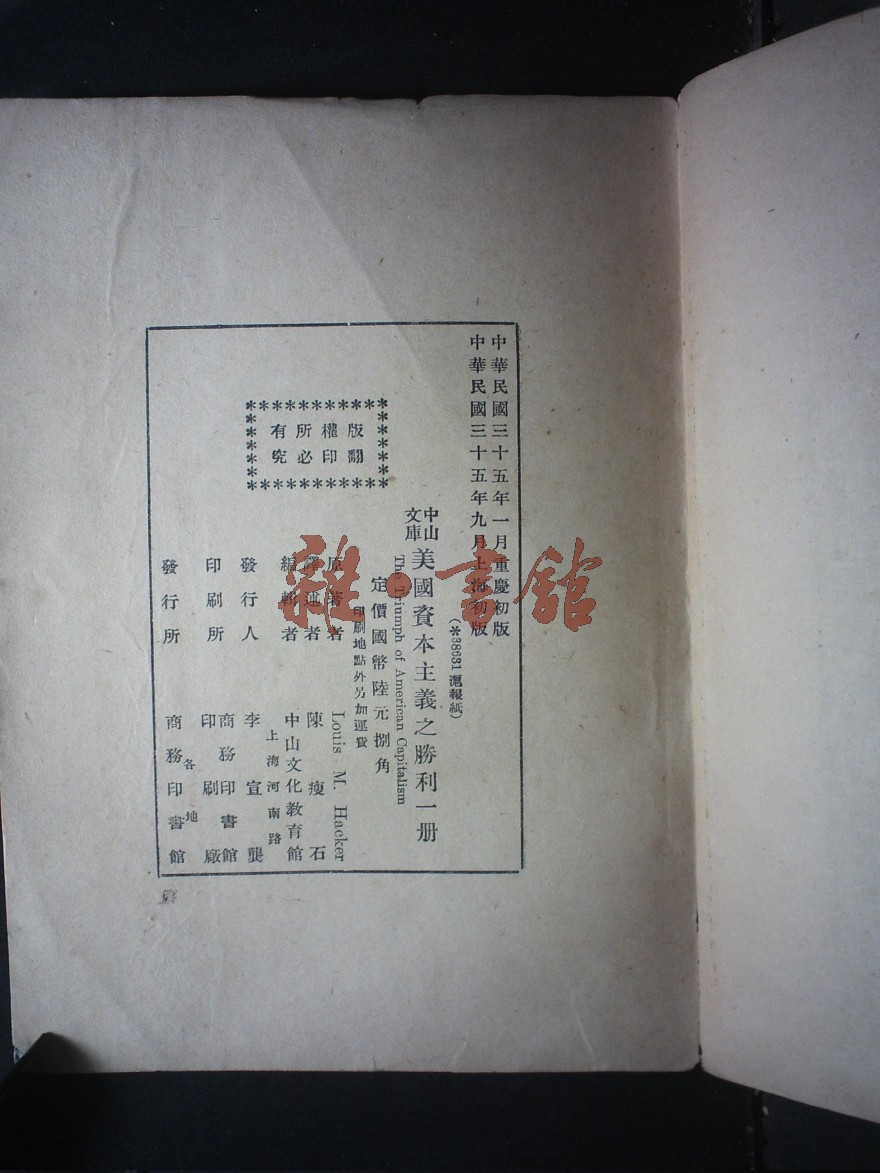 中華民國三十五年一月重慶初版
中華民國三十五年九月上海初版
(*38631 滬報紙)
中山文庫
美國資本主義之勝利一册
The Triumph of American Capitalism
定價國幣陸元捌角
印刷地點外另加運費
版權所有
翻印必究
原著者 Louis M. Hacker
譯述者 陳瘦石
編輯者 中山文化教育館
上海河南路
發行人 李宣龔
印刷所 商務印書館
印刷廠
發行所 各地
商務印書館
雜·書館